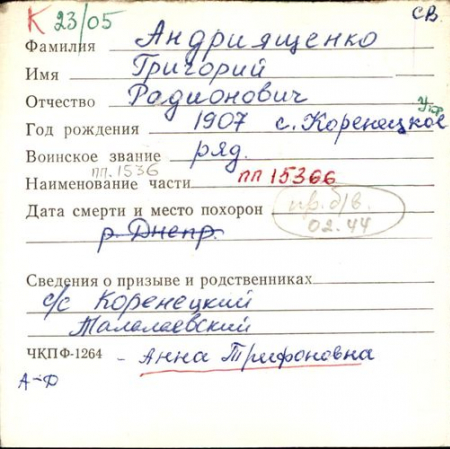 К 23/05 СВ.
Фамилия Андриященко
Имя Григорий
Отчество Радионович
Укр
Год рождения 1907 с. Коренецкое
Воинское звание ряд.
пп. 1536
Наименование части пп 15366
Дата смерти и место похорон пр. б/в.
02.44
р. Днепр.
Сведения о призыве и родственниках
с/с Коренецкий
Талалаевский
ЧКПФ-1264 - Анна Трифоновна
А-Д